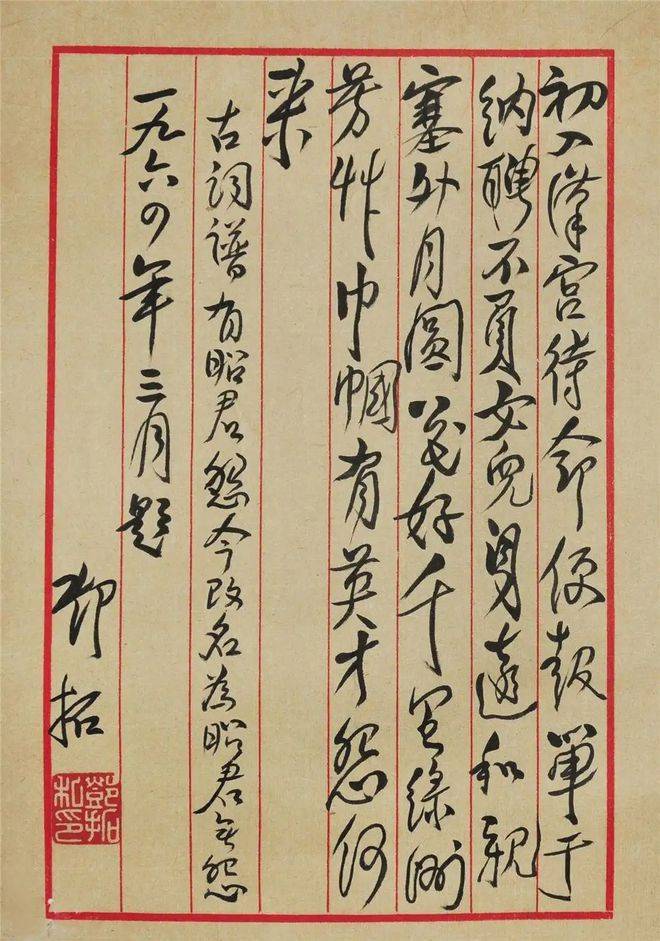 初入漢宮待命便報單于
納聘不負女兒身遠和親
塞外月圓花好千里綠洲
芳艸巾幗有英才怨何
来
古詞譜有昭君怨今改名為昭君無怨
一九六四年三月題
鄧拓
鄧拓私印